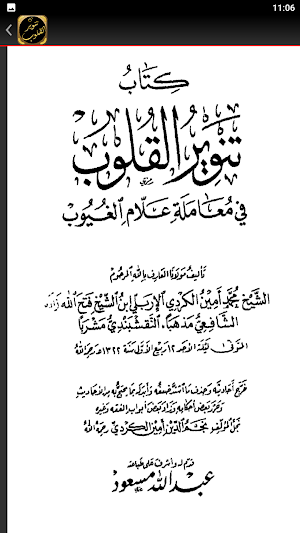 11:06
تنوير القلوب
كِتَابُ
تَنْوِيرُ القُلُوب
في مُعَامَلَةِ عَلَّامِ الْغُيُوب
تأليف مولانا العارف بالله المرحوم
الشَّيْخ مُحَمَّد أَمِين الكُرْدِي الإِرْبِلِي ابْنُ الشَّيْخ فَتْحُ اللهِ زَادَه
الشَّافِعِيّ مَذْهَبًا، النَّقْشَبَنْدِيّ مَشْرَبًا
المتوفى ليلة الأحد ١٢ ربيع الأول سنة ١٣٣٢ هـ رحمه الله
خرّج أحاديثه وحذف ما اشتد ضعفه وأبدله بما صح به من الأحاديث
وحرر بعض أحكامه وزاد بعض أبواب الفقه وغيره
نجل المؤلف نجم الدين أمين الكردي رحمه الله
قدم له وأشرف على طباعته
عبد الله مسعود